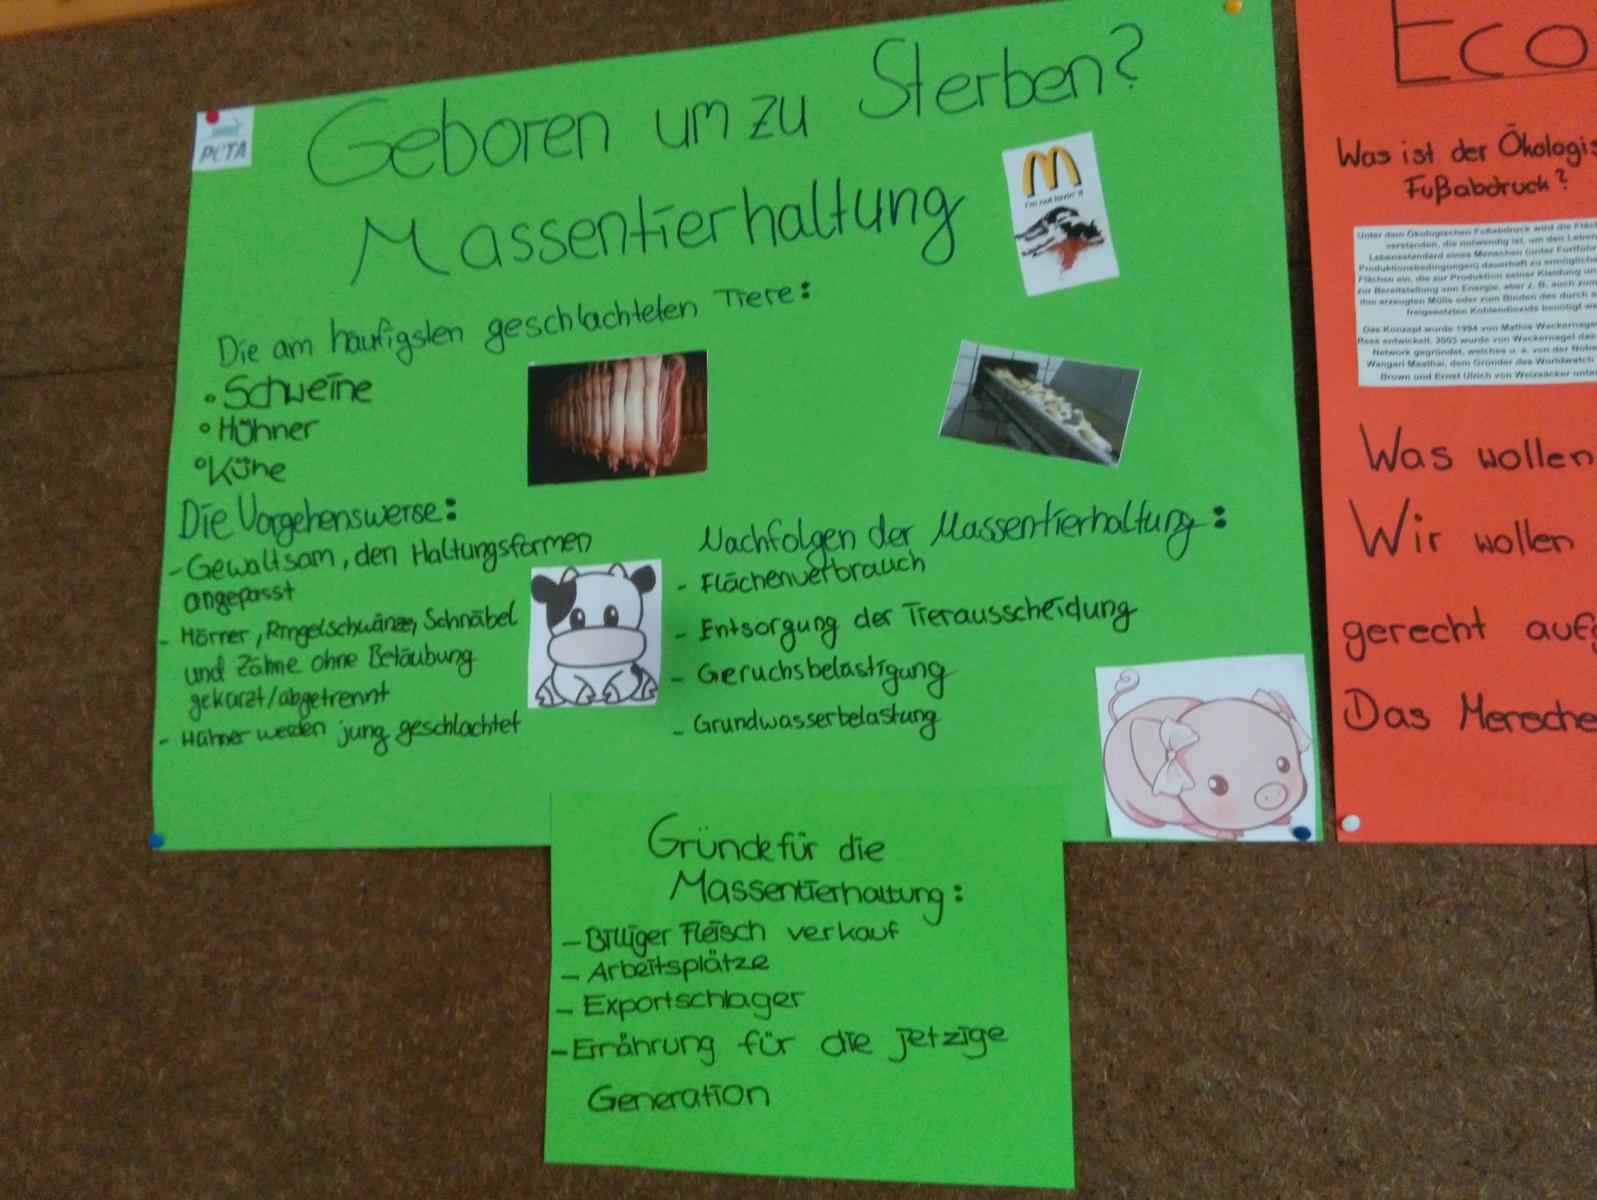 PETA
Geboren um zu Sterben?
Massentierhaltung
M
i'm not lovin' it
Die am häufigsten geschlachteten Tiere:
° Schweine
° Hühner
° Kühe
Die Vorgehensweise:
- Gewaltsam, den Haltungsformen
angepasst
- Hörner, Ringelschwänze, Schnäbel
und Zähne ohne Betäubung
gekürzt/abgetrennt
- Hühner werden jung geschlachtet
Nachfolgen der Massentierhaltung:
- Flächenverbrauch
- Entsorgung der Tierausscheidung
- Geruchsbelästigung
- Grundwasserbelastung
Gründe für die
Massentierhaltung:
- Billiger Fleisch verkauf
- Arbeitsplätze
- Exportschlager
- Ernährung für die jetzige
Generation
Eco
Was ist der Ökologis
Fußabdruck?
Unter dem Ökologischen Fußabdruck wird die Fläc
verstanden, die notwendig ist, um den Leben
Lebensstandard eines Menschen (unter Fortführ
Produktionsbedingungen) dauerhaft zu ermögliche
Flächen ein, die zur Produktion seiner Kleidung un
zur Bereitstellung von Energie, aber z. B. auch zum
ihm erzeugten Mülls oder zum Binden des durch s
freigesetzten Kohlendioxids benötigt we
Das Konzept wurde 1994 von Mathis Wackernagel
Rees entwickelt. 2003 wurde von Wackernagel das
Network gegründet, welches u. a. von der Nobe
Wangari Maathai, dem Gründer des Worldwatch
Brown und Ernst Ulrich von Weizsäcker unte
Was wollen
Wir wollen
gerecht auf
Das Mensche